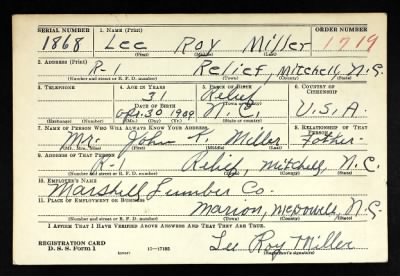 SERIAL NUMBER 1. NAME (Print) ORDER NUMBER
1868 Lee Roy Miller 1719
(First) (Middle) (Last)
2. ADDRESS (Print)
R-1 Relief, Mitchell, N.C.
(Number and street or R. F. D. number) (Town) (County) (State)
3. TELEPHONE 4. AGE IN YEARS 5. PLACE OF BIRTH 6. COUNTRY OF CITIZENSHIP
31 Relief
DATE OF BIRTH (Town or county)
Apr. 30 1909 N.C. U.S.A.
(Exchange) (Number) (Mo.) (Day) (Yr.) (State or country)
7. NAME OF PERSON WHO WILL ALWAYS KNOW YOUR ADDRESS 8. RELATIONSHIP OF THAT PERSON
Mr. John Miller Father
(Mr., Mrs., Miss) (First) (Middle) (Last)
9. ADDRESS OF THAT PERSON
R-1 Relief, Mitchell, N.C.
(Number and street or R. F. D. number) (Town) (County) (State)
10. EMPLOYER'S NAME
Marshall Lumber Co.
11. PLACE OF EMPLOYMENT OR BUSINESS
Marion, McDowell, N.C.
(Number and street or R. F. D. number) (Town) (County) (State)
I AFFIRM THAT I HAVE VERIFIED ABOVE ANSWERS AND THAT THEY ARE TRUE.
REGISTRATION CARD
D. S. S. Form 1 16—17105 Lee Roy Miller
(Registrant's signature)